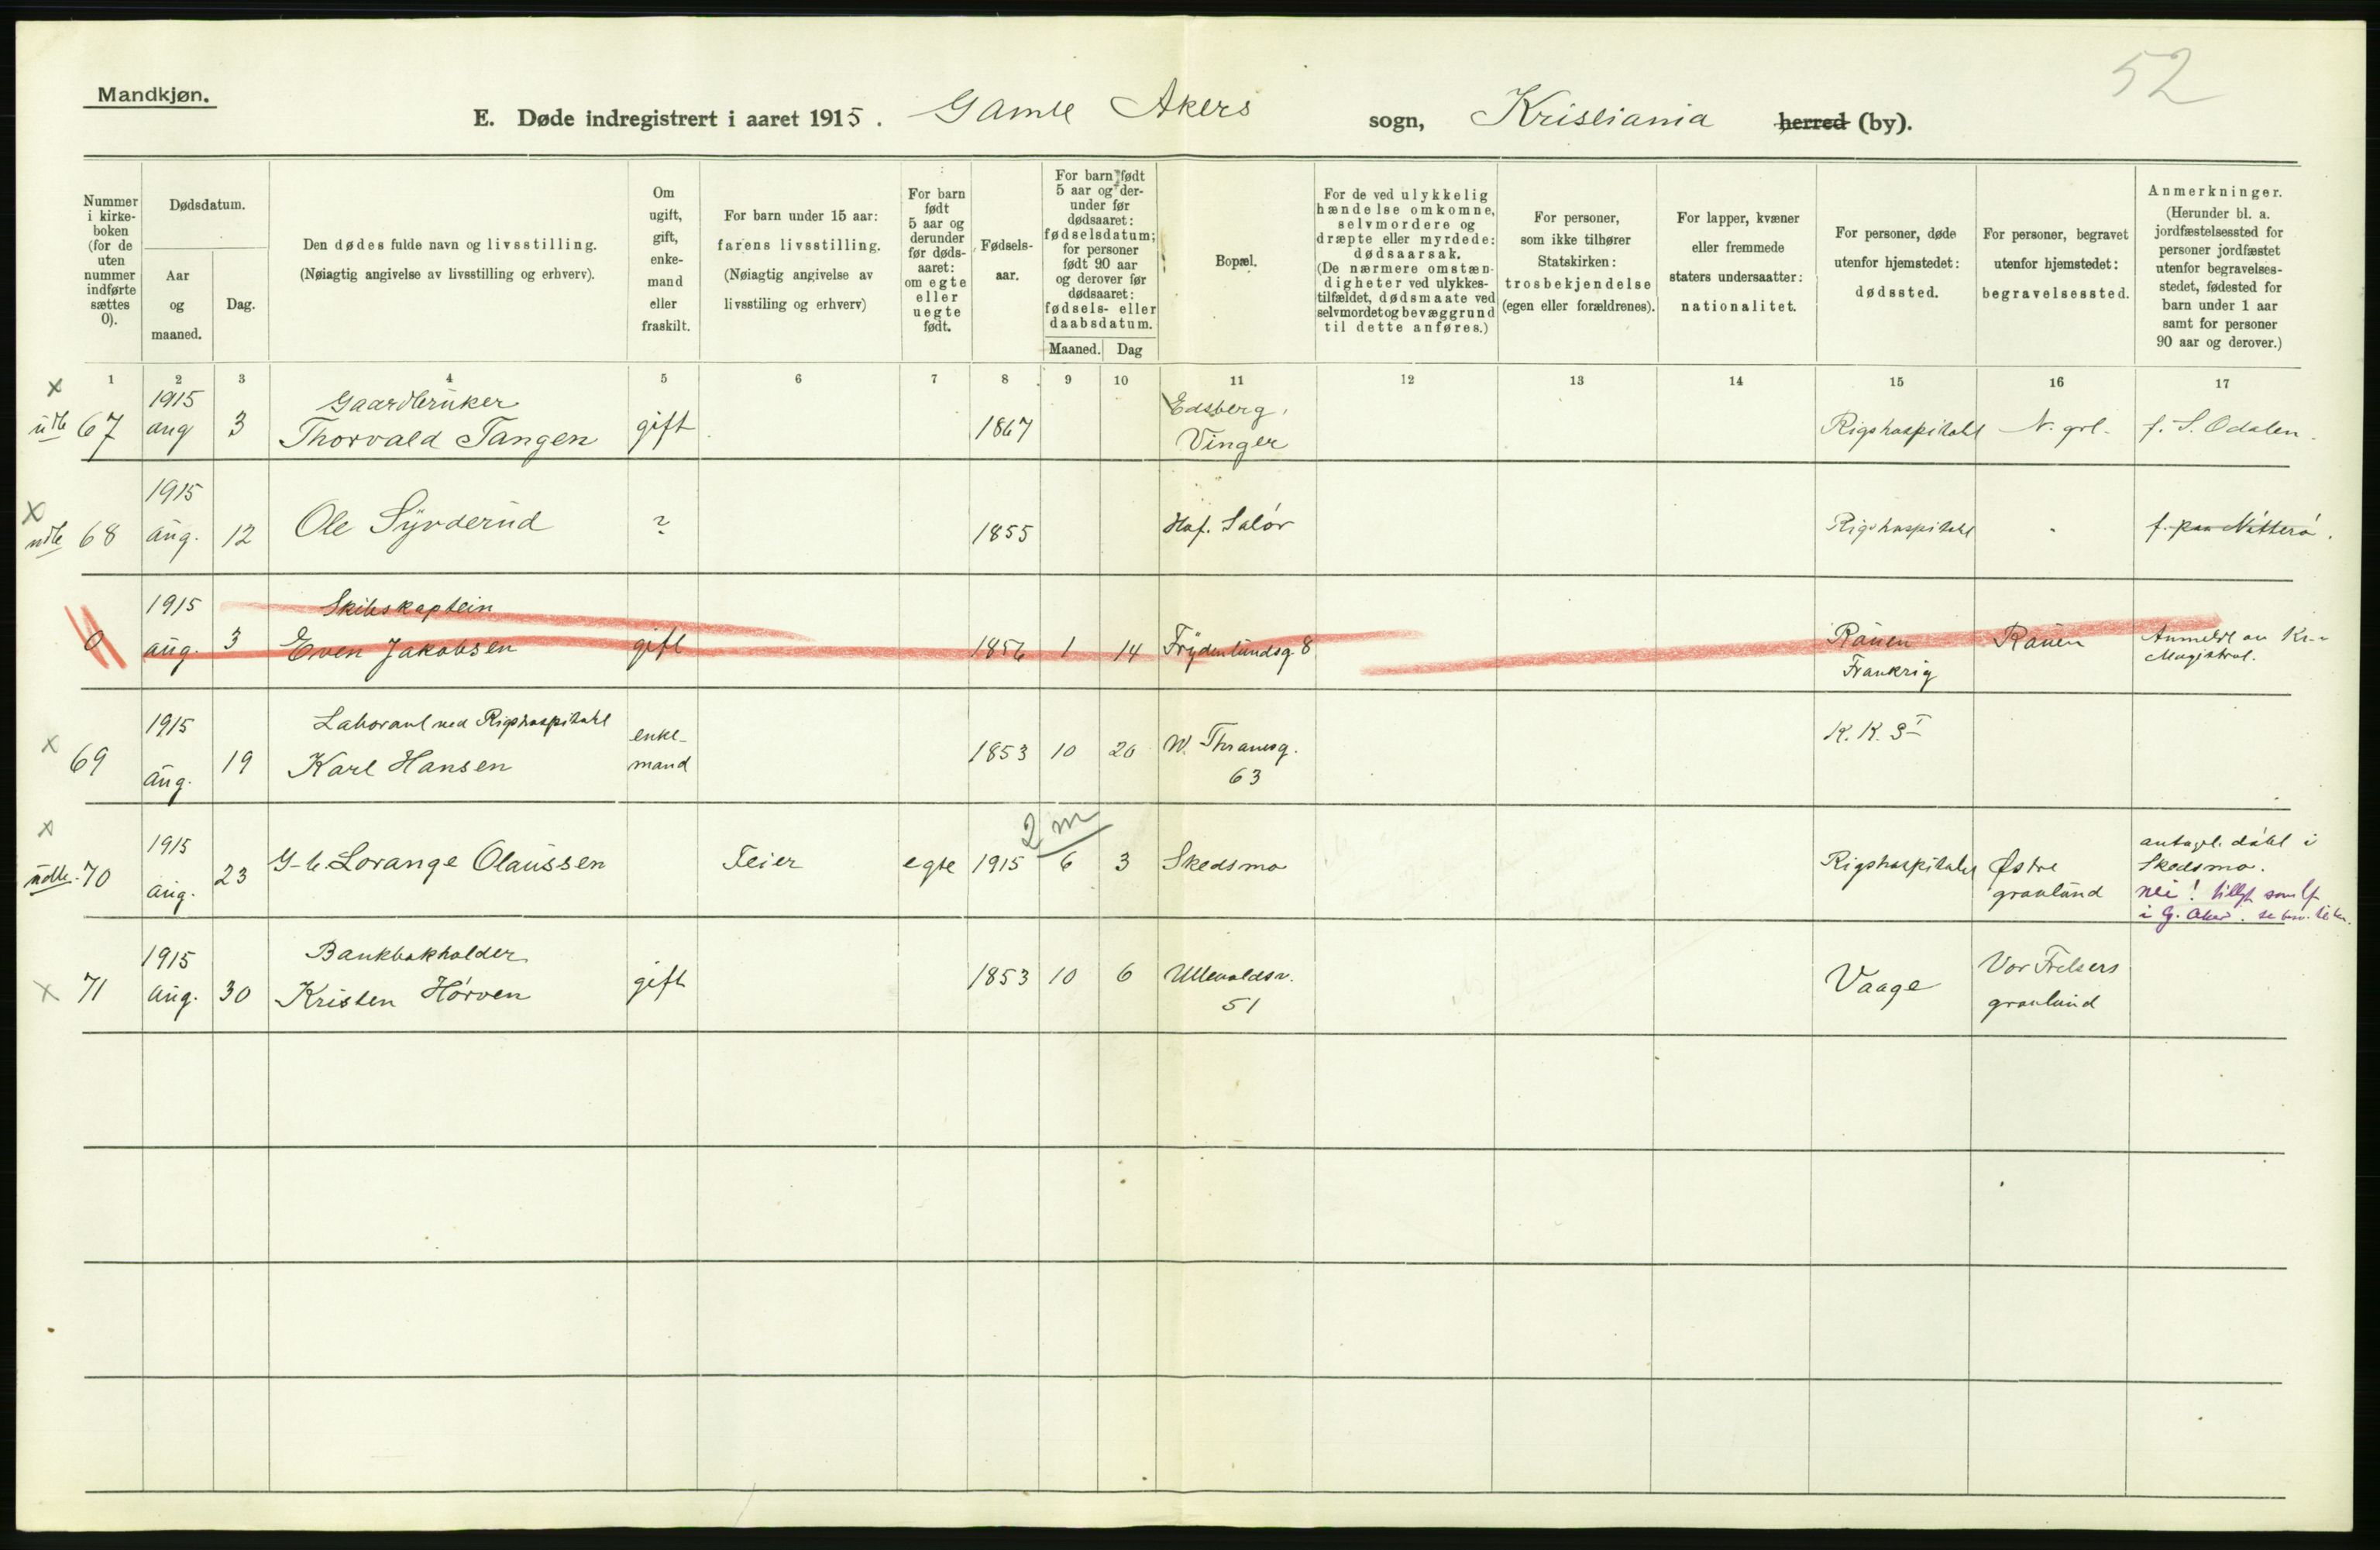 52
Mandkjøn.
E. Døde indregistrert i aaret 1915. Gamle Akers sogn, Kristiania herred (by).
Nummer i kirke-boken (for de uten nummer indførte sættes 0).
Dødsdatum.
Aar og maaned.
Dag.
Den dødes fulde navn og livsstilling.
(Nøiagtig angivelse av livsstilling og erhverv).
Om ugift, gift, enke-mand eller fraskilt.
For barn under 15 aar: farens livsstilling.
(Nøiagtig angivelse av livsstiling og erhverv)
For barn født 5 aar og derunder før døds-aaret: om egte eller uegte født.
Fødsels-aar.
For barn født 5 aar og der-under før dødsaaret: fødselsdatum; for personer født 90 aar og derover før dødsaaret: fødsels- eller daabsdatum.
Maaned.
Dag
Bopæl.
For de ved ulykkelig hændelse omkomne, selvmordere og dræpte eller myrdede: dødsaarsak.
(De nærmere omstæn-digheter ved ulykkes-tilfældet, dødsmaate ved selvmordet og bevæggrund til dette anføres.)
For personer, som ikke tilhører Statskirken: trosbekjendelse (egen eller forældrenes).
For lapper, kvæner eller fremmede staters undersaatter: nationalitet.
For personer, døde utenfor hjemstedet: dødssted.
For personer, begravet utenfor hjemstedet: begravelsessted.
Anmerkninger.
(Herunder bl. a. jordfæstelsessted for personer jordfæstet utenfor begravelses-stedet, fødested for barn under 1 aar samt for personer 90 aar og derover.)
1 2 3 4 5 6 7 8 9 10 11 12 13 14 15 16 17
x 1915 Gaardbruker Edsberg,
udb 67 aug 3 Thorvald Tangen gift 1867 Vinger Rigshospitalet N. grl. f. S. Odalen.
x 1915
udb 68 aug. 12 Ole Syverud ? 1855 Hof. Solør Rigshospitalet f. paa Nøtterø.
1915 Skibskaptein
0 aug. 3 Even Jakobsen gift 1856 1 14 Frydenlundsg. 8 Rouen Rouen Anmeldt av Kr.a
Frankrig Magistrat.
1915 Laborant ved Rigshospitalet enke- K. K. 3 I
x 69 aug. 19 Karl Hansen mand 1853 10 20 W. Thranesg.
63
x 2 m
1915 antagel. døbt i
udb. 70 aug. 23 G-b. Lorange Olaussen Feier egte 1915 6 3 Skedsmo Rigshospitalet Østre Skedsmo.
gravlund nei!
i G. Aker.
1915 Bankbokholder Vor Frelsers
x 71 aug. 30 Kristen Hørven gift 1853 10 6 Ullevoldsv. Vaage gravlund
51